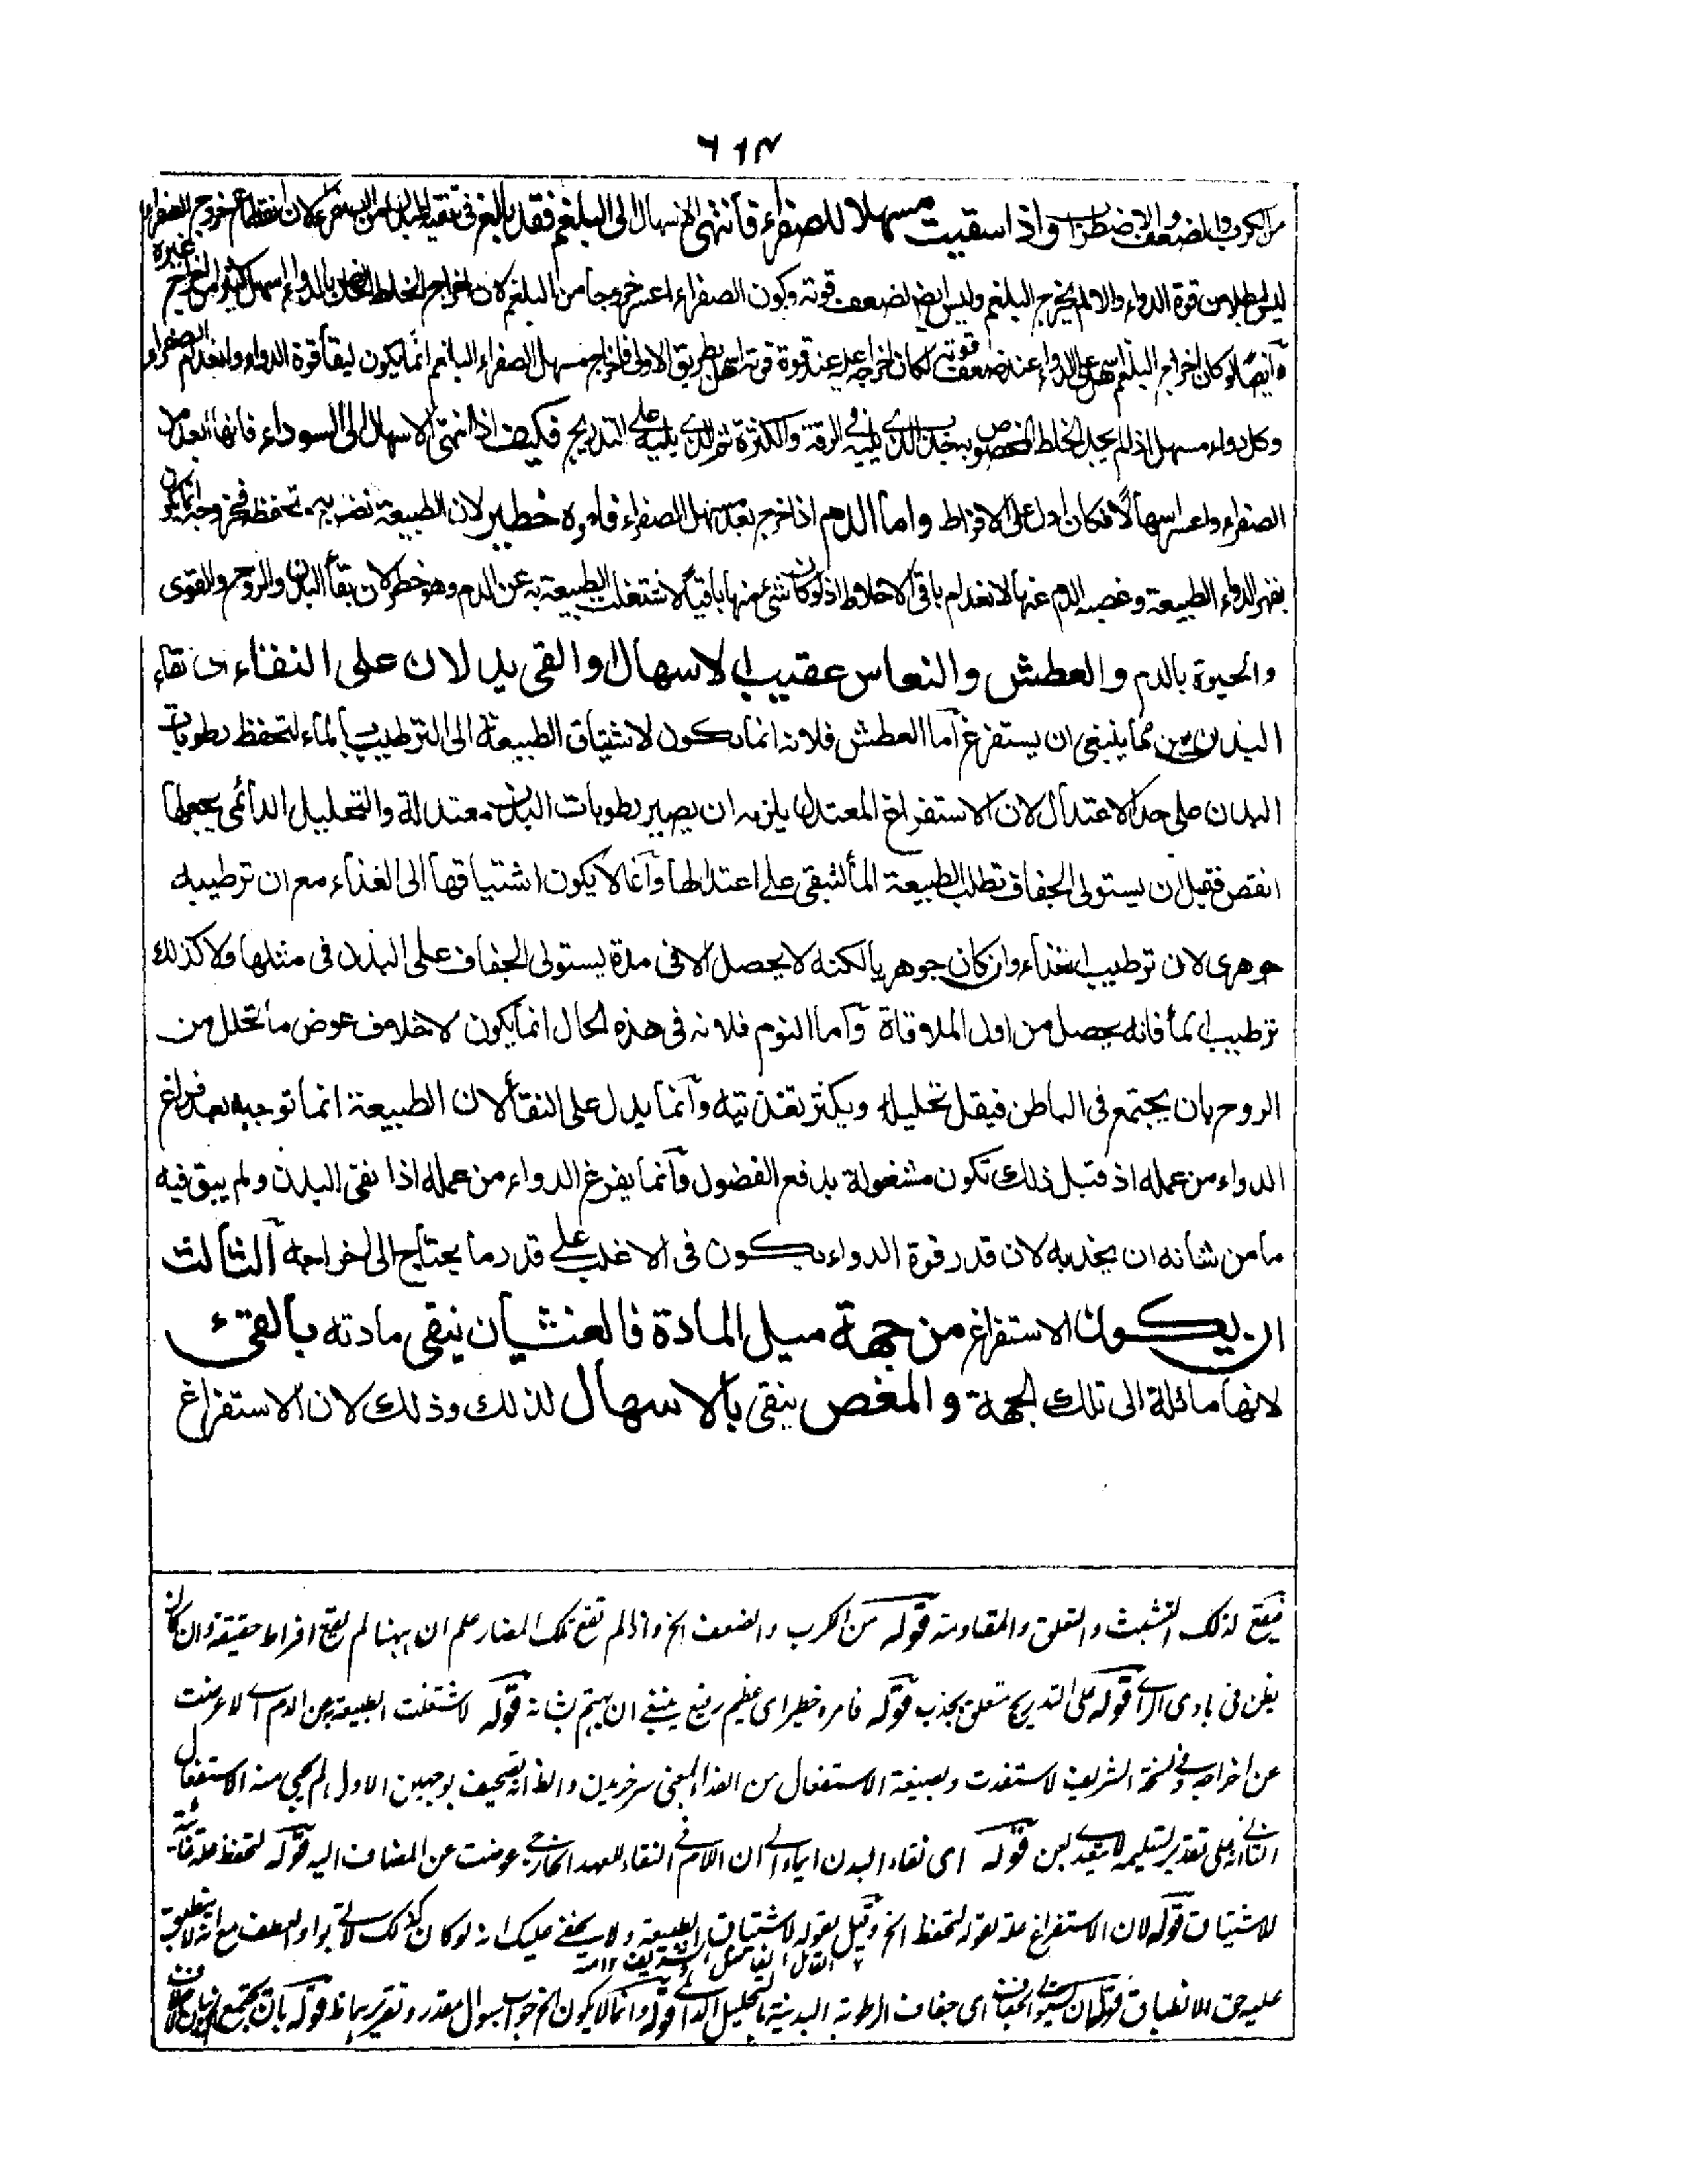 ٦١٣
من الكرب والضعف والاضطراب واذا سقيت مسهلا للصفراء فانتهى الاسهال الى البلغم فقد بالغ في تنقية البدن من الصفراء لان انقطاع خروج الصفراء
ليس لبطلان قوة الدواء والا لم يخرج البلغم وليس ايضا لضعف قوته وكون الصفراء اعسر خروجا من البلغم لان اخراج الخلط الخاص بالدواء اسهل كثيرا من اخراج غيره
وايضا لو كان اخراج البلغم اسهل على الدواء عند ضعف قوته لكان اخراجه عليه عند قوة قوته اسهل بطريق الاولى فاخراج مسهل الصفراء البلغم انما يكون لبقاء قوة الدواء وانعدام الصفراء
وكل دواء مسهل اذا لم يجد الخلط المخصوص به يجذب الذي يليه في الرقة والكثرة ثم الذي يليه على التدريج فكيف اذا انتهى الاسهال الى السوداء فانها ابعد من
الصفراء واعسر اسهالا فكان ادل على الافراط واما الدم اذا خرج بعد مسهل الصفراء فامره خطير لان الطبيعة تضن به وتحفظه فخروجه انما يكون
بقهر الدواء الطبيعة وغصبه الدم عنها لانعدام باقي الاخلاط اذ لو كان شيء منها باقيا لاشتغلت الطبيعة به عن الدم وهو خطر لان بقاء البدن والروح والقوى
والحيوة بالدم والعطش والنعاس عقيب الاسهال والقي يدلان على النقاء اى نقاء
البدن من مما ينبغى ان يستفرغ اما العطش فلانه انما يكون لاشتياق الطبيعة الى الترطيب بالماء لتحفظ رطوبات
البدن على حد الاعتدال لان الاستفراغ المعتدل يلزمه ان يصير رطوبات البدن معتدلة والتحليل الدائمى يجعلها
انقص فقبل ان يستولى الجفاف تطلب الطبيعة الماء لتبقى على اعتدالها وانما لا يكون اشتياقها الى الغذاء مع ان ترطيبه
جوهرى لان ترطيب الغذاء وان كان جوهريا لكنه لا يحصل الا فى مدة يستولى الجفاف على البدن فى مثلها ولا كذلك
ترطيب الماء فانه يحصل من اول الملاقاة واما النوم فلانه فى هذه الحال انما يكون لاخلاف عوض ما تحلل من
الروح بان يجتمع فى الباطن فيقل تحليله ويكثر تغذيته وانما يدل على النقاء لان الطبيعة انما توجبه بعد فراغ
الدواء من عمله اذ قبل ذلك تكون مشغولة بدفع الفضول وانما يفرغ الدواء من عمله اذا نقى البدن ولم يبق فيه
ما من شانه ان يجذبه لان قدر قوة الدواء يكون فى الاغلب على قدر ما يحتاج الى اخراجه الثالث
ان يكون الاستفراغ من جهة ميل المادة فالغثيان ينقى مادته بالقئ
لانها مائلة الى تلك الجهة والمغص ينقى بالاسهال لذلك وذلك لان الاستفراغ
فيقع لذلك التشبث والتعلق والمقاومة قوله من الكرب والضعف الخ واذا لم تقع تلك المضار علم ان ههنا لم يقع افراط حقيقة وان كان
يظن فى بادى الراى قوله على التدريج متعلق بيجذب قوله فامره خطير اى عظيم رفيع ينبغى ان يهتم بشانه قوله لاشتغلت الطبيعة به عن الدم اى لاعرضت
عن اخراجه وفى نسخة الشريف لاستفدت وبصيغة الاستفعال من الفداء بمعنى سر خريدن والظ انه تصحيف بوجهين الاول لم يجى منه الاستفعال
الثانى انه على تقدير تسليمه لا يتعدى بعن قوله اى نقاء البدن ايماء الى ان اللام فى النقاء للعهد الخارجى عوضت عن المضاف اليه قوله لتحفظ علة غائية
للاشتياق قوله لان الاستفراغ علة لقوله لتحفظ الخ وقيل لقوله لاشتياق الطبيعة ولا يخفى عليك انه لو كان كذلك لاتى بواو العطف مع انه لا ينطبق
عليه حق الانطباق قوله ان يستولى الجفاف اى جفاف الرطوبة البدنية بالتحليل الدائمى قوله وانما لا يكون الخ جواب سوال مقدر وتقريره ظ قوله بان يجتمع